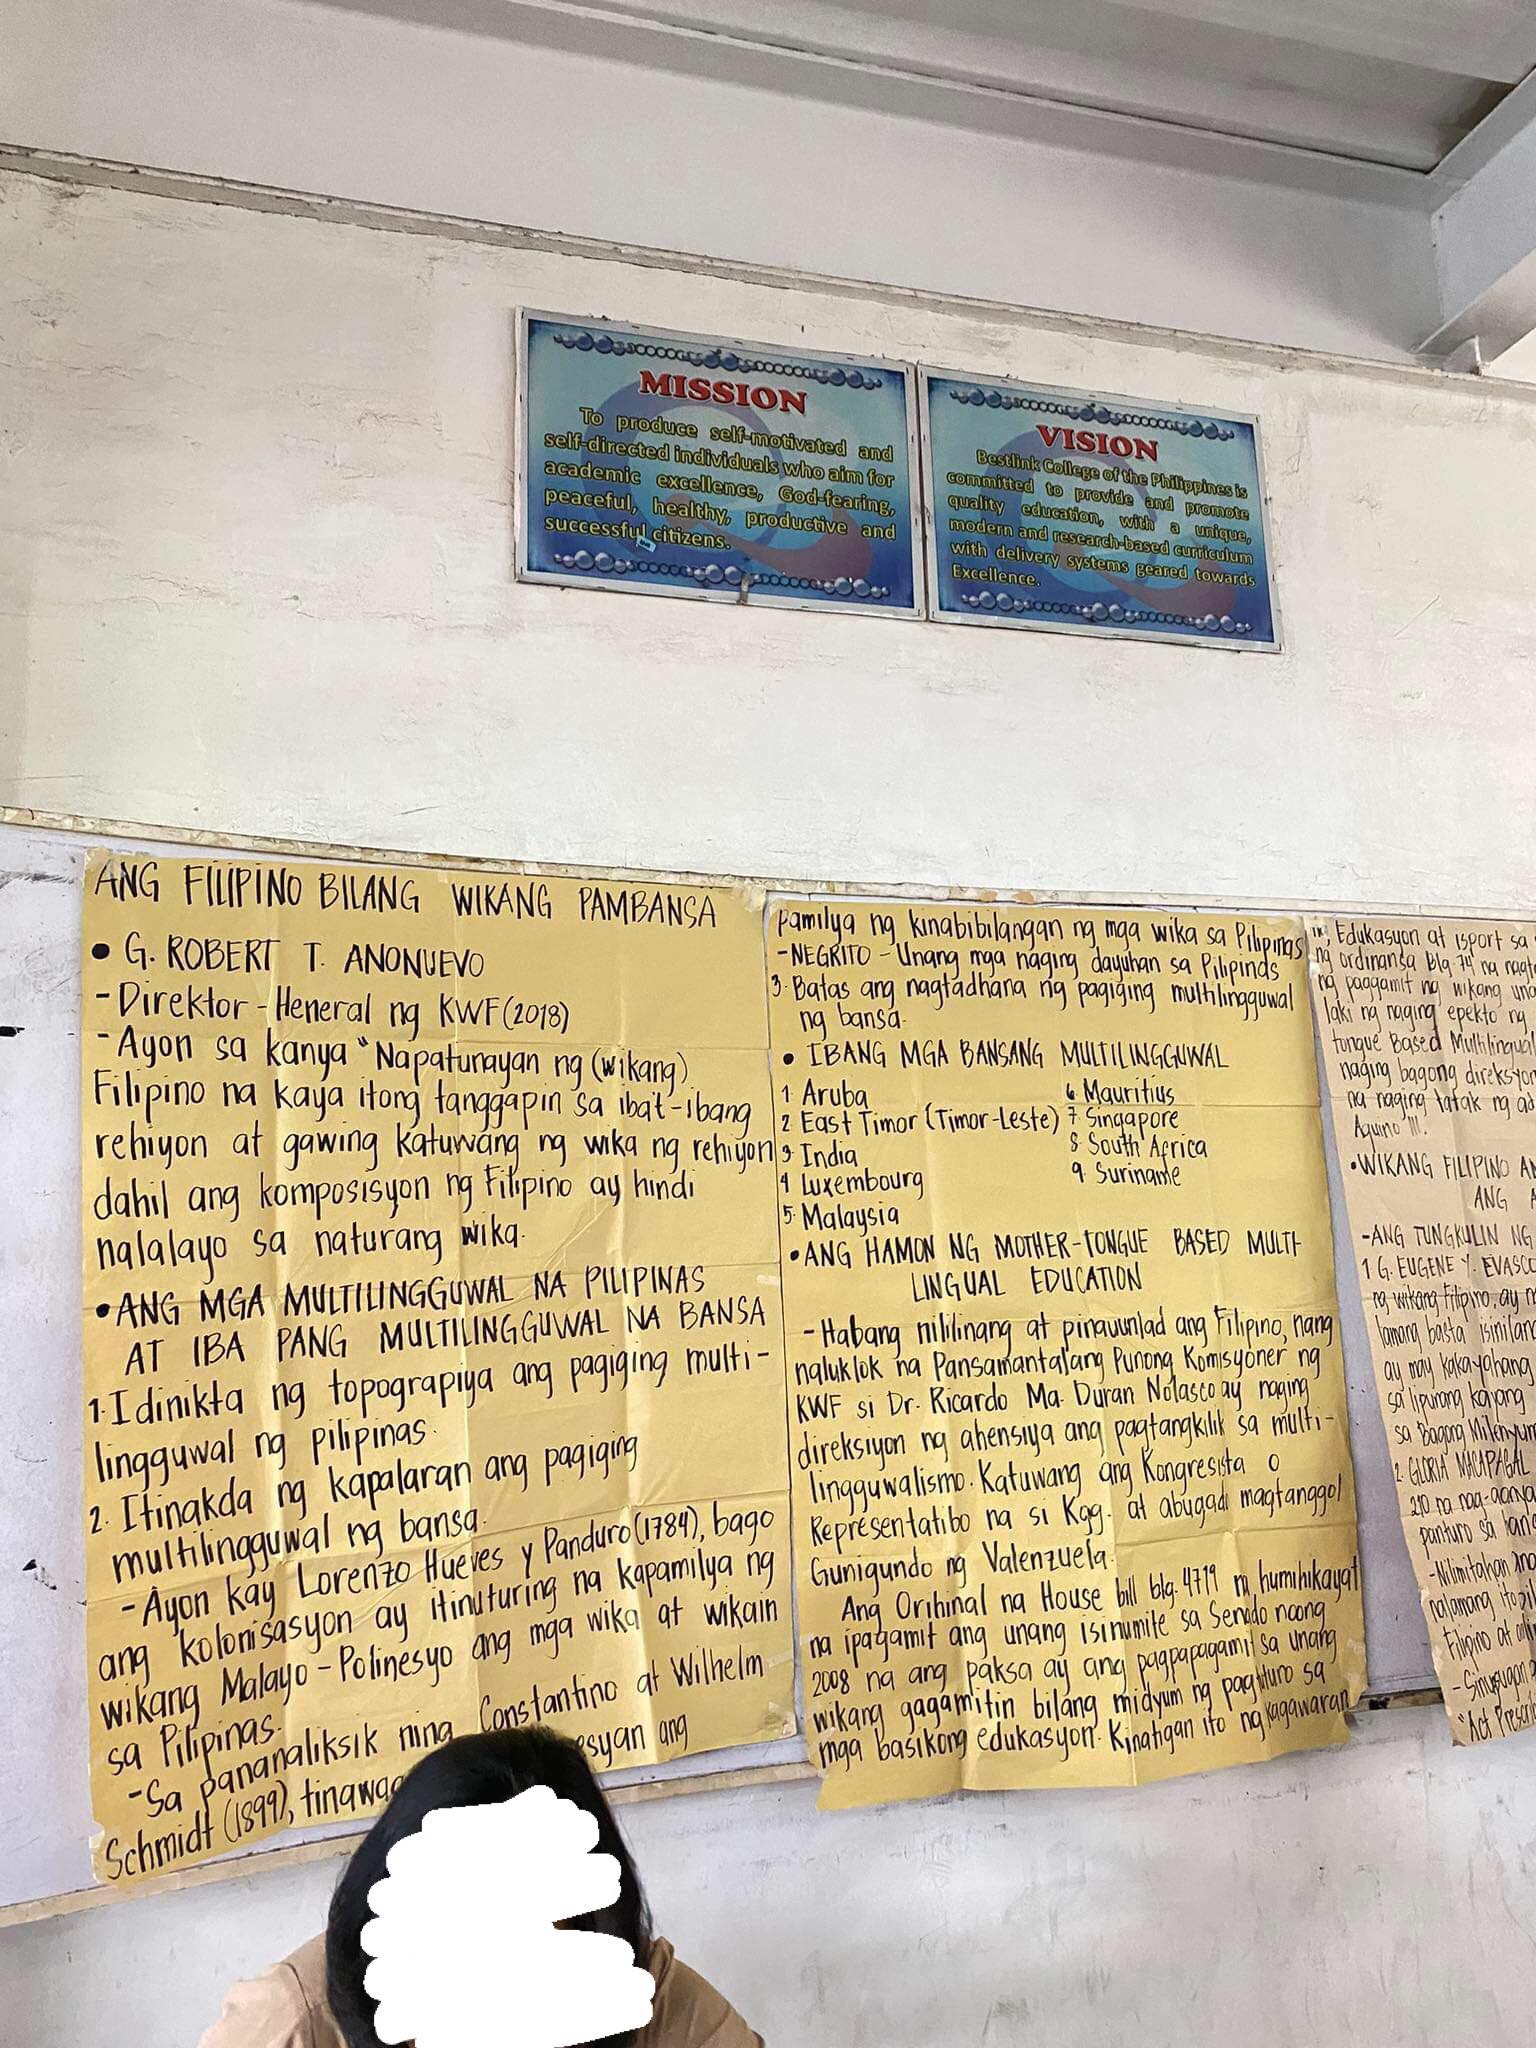 MISSION
To produce self-motivated and
self-directed individuals who aim for
academic excellence, God-fearing,
peaceful, healthy, productive and
successful citizens.
VISION
Bestlink College of the Philippines is
committed to provide and promote
quality education, with a unique,
modern and research-based curriculum
with delivery systems geared towards
Excellence.
ANG FILIPINO BILANG WIKANG PAMBANSA
• G. ROBERT T. ANONUEVO
- Direktor - Heneral ng KWF (2018)
- Ayon sa kanya "Napatunayan ng (wikang)
Filipino na kaya itong tanggapin sa iba't-ibang
rehiyon at gawing katuwang ng wika ng rehiyon
dahil ang komposisyon ng Filipino ay hindi
nalalayo sa naturang wika.
• ANG MGA MULTILINGGUWAL NA PILIPINAS
AT IBA PANG MULTILINGGUWAL NA BANSA
1. Idinikta ng topograpiya ang pagiging multi-
lingguwal ng pilipinas.
2. Itinakda ng kapalaran ang pagiging
multilingguwal ng bansa.
- Ayon kay Lorenzo Hueves y Panduro (1784), bago
ang kolonisasyon ay itinuturing na kapamilya ng
wikang Malayo - Polinesyo ang mga wika at wikain
sa Pilipinas.
- Sa pananaliksik nina Constantino at Wilhelm
Schmidt (1899), tinawag esyan ang
pamilya ng kinabibilangan ng mga wika sa Pilipinas
- NEGRITO - Unang mga naging dayuhan sa Pilipinas
3. Batas ang nagtadhana ng pagiging multilingguwal
ng bansa.
• IBANG MGA BANSANG MULTILINGGUWAL
1 Aruba
2 East Timor (Timor-Leste)
3. India
4 Luxembourg
5. Malaysia
6. Mauritius
7 Singapore
8. South Africa
9. Suriname
• ANG HAMON NG MOTHER-TONGUE BASED MULTI-
LINGUAL EDUCATION
- Habang nililinang at pinauunlad ang Filipino, nang
naluklok na Pansamantalang Punong Komisyoner ng
KWF si Dr. Ricardo Ma. Duran Nolasco ay naging
direksiyon ng ahensiya ang pagtangkilik sa multi-
lingguwalismo. Katuwang ang Kongresista o
Representatibo na si Kgg. at abugadi magtanggol
Gunigundo ng Valenzuela.
Ang Orihinal na House bill blg. 4719 na humihikayat
na ipagamit ang unang isinumite sa Senado noong
2008 na ang paksa ay ang pagpapagamit sa unang
wikang gagamitin bilang midyum ng pagtuturo sa
mga basikong edukasyon. Kinatigan ito ng kagawaran
Edukasyon at isport sa
ng ordinansa blg 74 na
ng paggamit ng wikang
laki ng naging epekto ng
tongue Based Multilingual
naging bagong direksyon
na naging tatak ng ad
Aquino III.
• WIKANG FILIPINO
ANG
- ANG TUNGKULIN NG
1 G. EUGENE Y. EVASCO
ng wikang Filipino, ay
lamang basta isinilang
ay may kakayahang
sa lipunang kayang
sa Bagong Milenyum
2. GLORIA MACAPAGAL
210 na
panturo sa
- Nilimitahan
nalamang ito
Filipino at
- Sinusugan
"Act